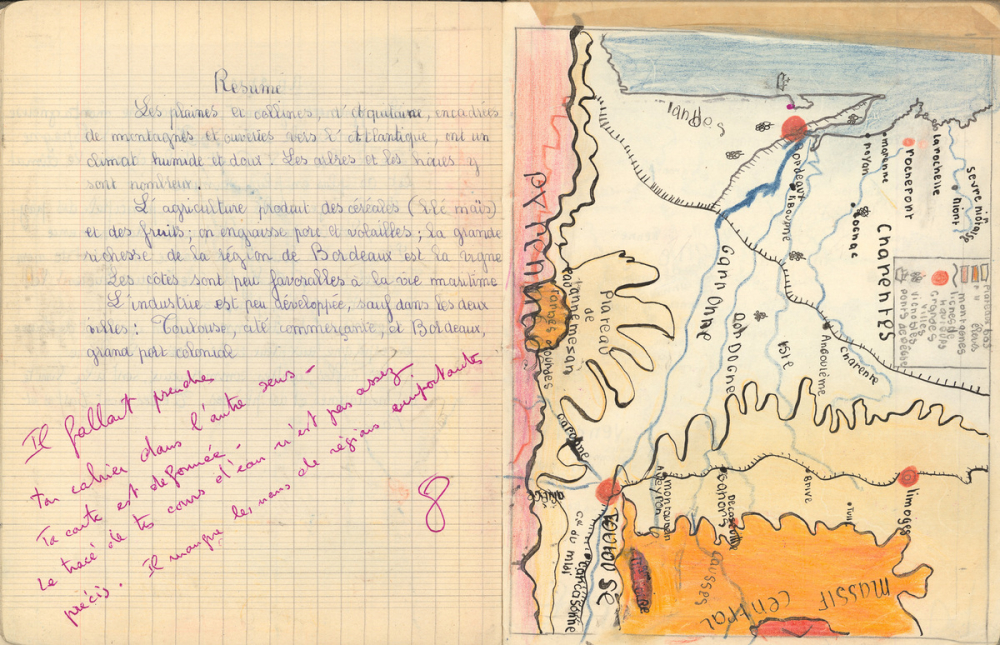 Résumé
Les plaines et collines, d'Aquitaine, encadrées
de montagnes et ouvertes vers l'Atlantique, ont un
climat humide et doux. Les arbres et les haies y
sont nombreux.
L'agriculture produit des céréales (blé maïs)
et des fruits; on engraisse porc et volailles; la grande
richesse de la région de Bordeaux est la vigne
Les côtes sont peu favorables à la vie maritime
L'industrie est peu développée, sauf dans les deux
villes: Toulouse, cité commerçante, et Bordeaux,
grand port coloniale
Il fallait prendre
ton cahier dans l'autre sens -
Ta carte est déformée -
Le tracé de tes cours d'eau n'est pas assez
précis. Il manque les noms de régions importantes
8
landes
Bordeaux
Libourne
royan
marenne
rochefort
la rochelle
Sèvre niortaise
niort
cognac
Charentes
Charente
Angoulême
Isle
DORDOGNE
GARONNE
Pyrénnées
Plateau
de
lannemesan
garonne
ariège
TOULOUSE
montauban
Aveyron
cahors
Decazeville
Brive
Tulle
limoges
MASSIF central
causses
carcassonne
montagnes
villes
vignobles